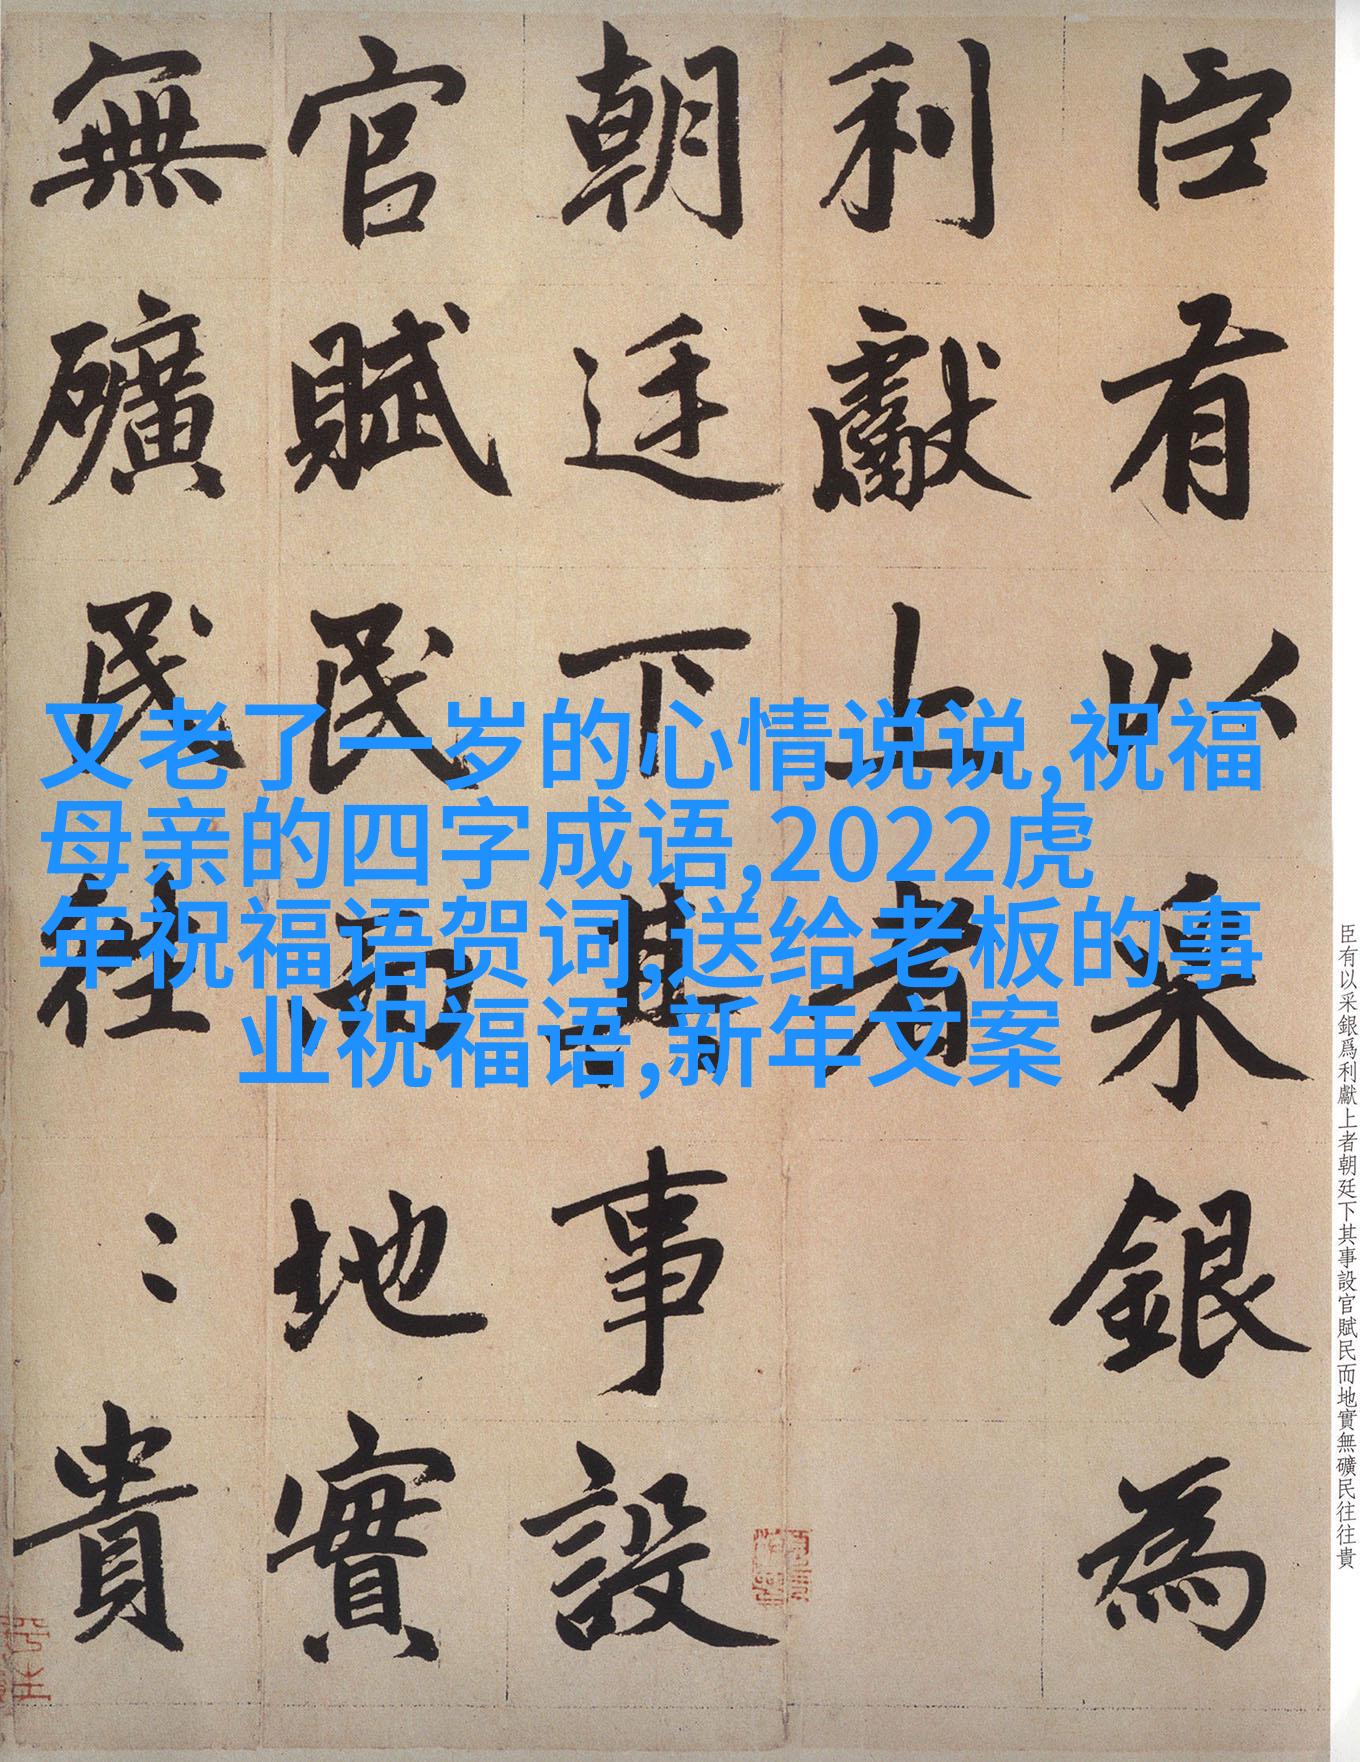 臣有以采銀為
利獻上者
朝廷下其事設
官賦民而地實
無礦民往〻貴
又老了一岁的心情说说,祝福
母亲的四字成语,2022虎
年祝福语贺词,送给老板的事
业祝福语,新年文案
臣有以采銀爲利獻上者朝廷下其事設官賦民而地實無礦民往往貴